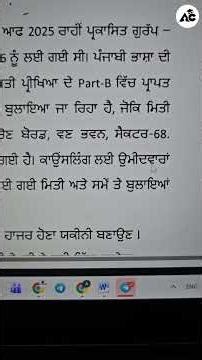 AC
ਆਫ 2025 ਰਾਹੀਂ ਪ੍ਰਕਾਸਿਤ ਗੁਰੱਪ –
ਨੂੰ ਲਈ ਗਈ ਸੀ। ਪੰਜਾਬੀ ਭਾਸ਼ਾ ਦੀ
ਪ੍ਰੀਖਿਆ ਦੇ Part-B ਵਿੱਚ ਪ੍ਰਾਪਤ
ਬੁਲਾਇਆ ਜਾ ਰਿਹਾ ਹੈ, ਜੋਕਿ ਮਿਤੀ
ਬੋਰਡ, ਵਣ ਭਵਨ, ਸੈਕਟਰ-68.
ਗਈ ਹੈ। ਕਾਉਂਸਲਿੰਗ ਲਈ ਉਮੀਦਵਾਰਾਂ
ਗਈ ਮਿਤੀ ਅਤੇ ਸਮੇਂ ਤੇ ਬੁਲਾਇਆਂ
ਹਾਜਰ ਹੋਣਾ ਯਕੀਨੀ ਬਣਾਉਣ।
ENG